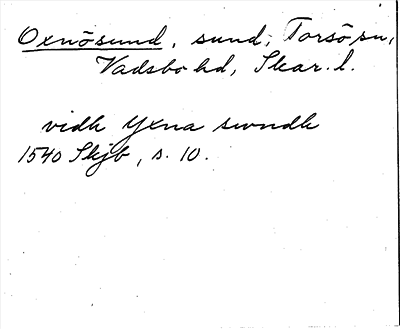 Oxnösund, sund, Torsö sn,
Vadsbo hd, Skar. l.
vidh Yxna swndh
1540 Skjb, s. 10.